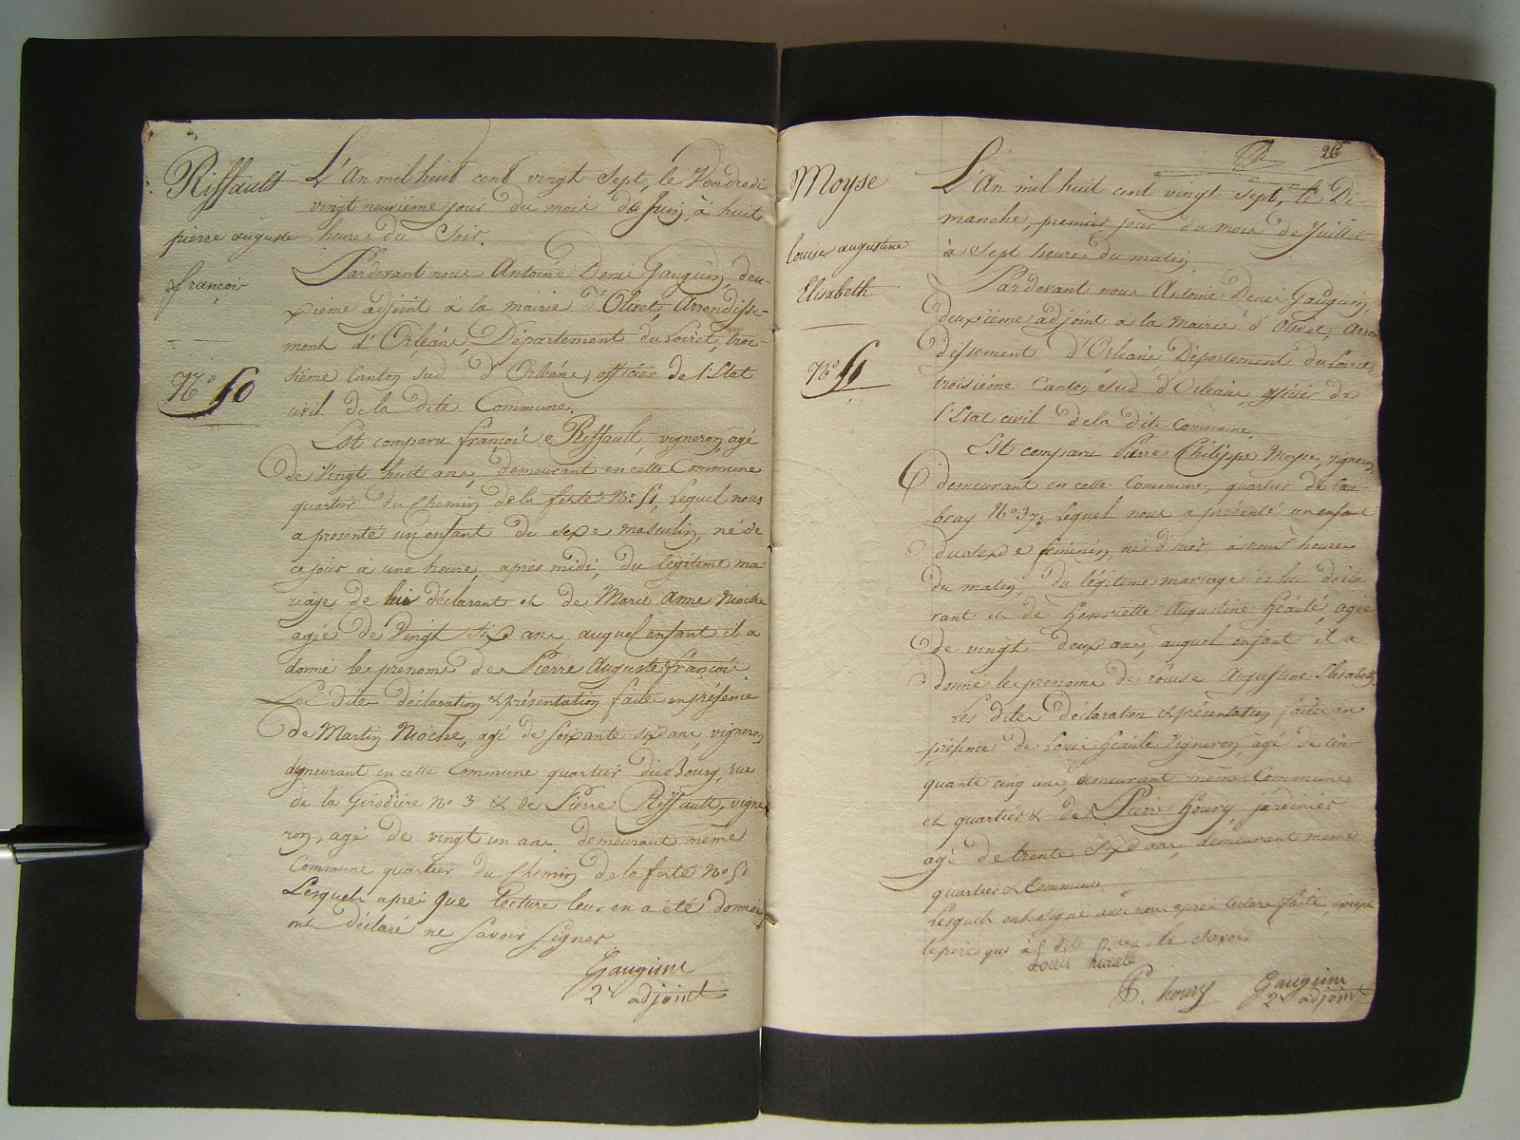 Riffault
pierre auguste
françois
No 50
L'An mil huit cent vingt Sept, le Vendredi
vingt neuvième jour du mois de Juin, à huit
heures du Soir.
Pardevant nous Antoine Denis Gauguin, deu-
xième adjoint à la mairie d'Olivet, Arrondisse-
ment d'Orléans, Département du Loiret, troi-
sième Canton sud d'Orléans, officier de l'Etat
civil de la dite Commune.
Est comparu françois Riffault, vigneron, agé
de Vingt huit ans, demeurant en cette Commune
quartier du Chemin de la ferté No 51, lequel nous
a presenté un enfant du sexe masculin, né de
ce jour à une heure, après midi, du légitime ma
riage de lui déclarant et de Marie Anne Nioche
agée de Vingt Six ans auquel enfant il a
donné les prenoms de Pierre Auguste françois
Les dites déclaration et présentation faite en présence
de Martin Nioche, agé de soixante six ans, vigneron
demeurant en cette Commune quartier du Bourg, rue
de la Girodière No 3 et de Pierre Riffault, vigne
ron, agé de vingt un ans demeurant même
Commune quartier du Chemin de la ferté No 51
Lesquels après que lecture leur en a été donnée
ont déclaré ne Savoir Signer
Gaugirin
2e adjoint
26
Moyse
louise augustine
Elisabeth
No 51
L'An mil huit cent vingt sept, le Di-
manche, premier jour du mois de Juillet
à Sept heures du matin
Pardevant nous Antoine Denis Gauguin,
deuxième adjoint a la Mairie d'Olivet, Arron
dissement d'Orléans, Département du Loiret,
troisième Canton Sud d'Orléans, officier de
l'Etat civil de la dite Commune.
Est comparu Pierre Philippe Moyse, vigneron,
demeurant en cette Commune, quartier de
No 37, lequel nous a présenté un enfant
du sexe féminin, né d'hier, à neuf heures
du matin, du légitime mariage de lui décla
rant et de Henriette Augustine, agée
de vingt deux ans, auquel enfant il a
donné les prenoms de Louise Augustine Elisabeth
Les dites déclaration et présentation faite en
présence de Louis vigneron, agé de cin
quante cinq ans, demeurant même Commune
et quartier & de Pierre Houry, jardinier
agé de trente Six ans, demeurant même
quartier et Commune,
Lesquels ont signé avec nous après lecture faite, excepté
le père qui a dit ne le Savoir
Louis
P. houry
Gaugirin
2e adjoint